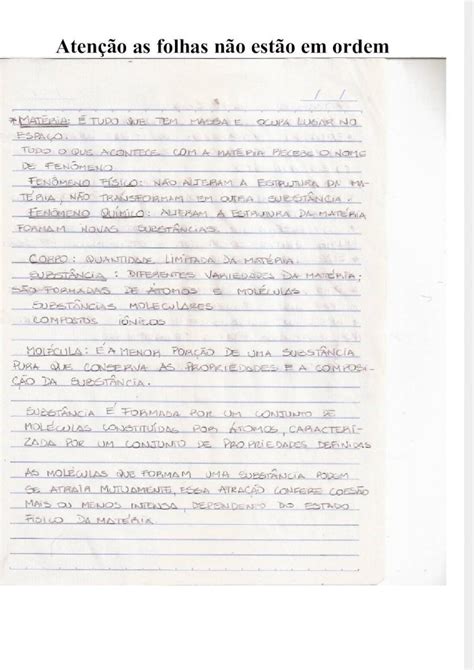 Atenção as folhas não estão em ordem
/ /
* MATÉRIA: É TUDO QUE TEM MASSA E OCUPA LUGAR NO
ESPAÇO.
TUDO O QUE ACONTECE COM A MATÉRIA RECEBE O NOME
DE FENÔMENO
FENÔMENO FÍSICO: NÃO ALTERAM A ESTRUTURA DA MA-
TÉRIA, NÃO TRANSFORMAM EM OUTRA SUBSTÂNCIA.
FENÔMENO QUÍMICO: ALTERAM A ESTRUTURA DA MATÉRIA
FORMAM NOVAS SUBSTÂNCIAS.
CORPO: QUANTIDADE LIMITADA DA MATÉRIA.
SUBSTÂNCIA: DIFERENTES VARIEDADES DA MATÉRIA;
SÃO FORMADAS DE ÁTOMOS E MOLÉCULAS
SUBSTÂNCIAS MOLECULARES
COMPOSTOS IÔNICOS
MOLÉCULA: É A MENOR PORÇÃO DE UMA SUBSTÂNCIA
PURA QUE CONSERVA AS PROPRIEDADES E A COMPOSI-
ÇÃO DA SUBSTÂNCIA.
SUBSTÂNCIA É FORMADA POR UM CONJUNTO DE
MOLÉCULAS CONSTITUÍDAS POR ÁTOMOS, CARACTERI-
ZADA POR UM CONJUNTO DE PROPRIEDADES DEFINIDAS
AS MOLÉCULAS QUE FORMAM UMA SUBSTÂNCIA PODEM
SE ATRAIR MUTUAMENTE, ESSA ATRAÇÃO CONFERE COESÃO
MAIS OU MENOS INTENSA, DEPENDENDO DO ESTADO
FÍSICO DA MATÉRIA